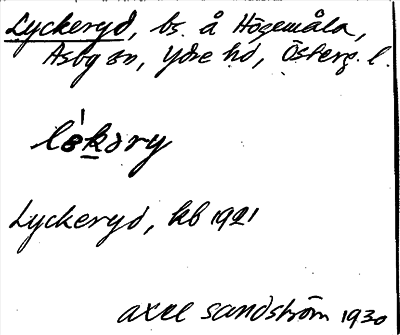 Lyckeryd, bs. å Högemåla,
Asby sn, Ydre hd, Österg. l.
Lyckeryd, kb 1921
Axel Sandström 1930